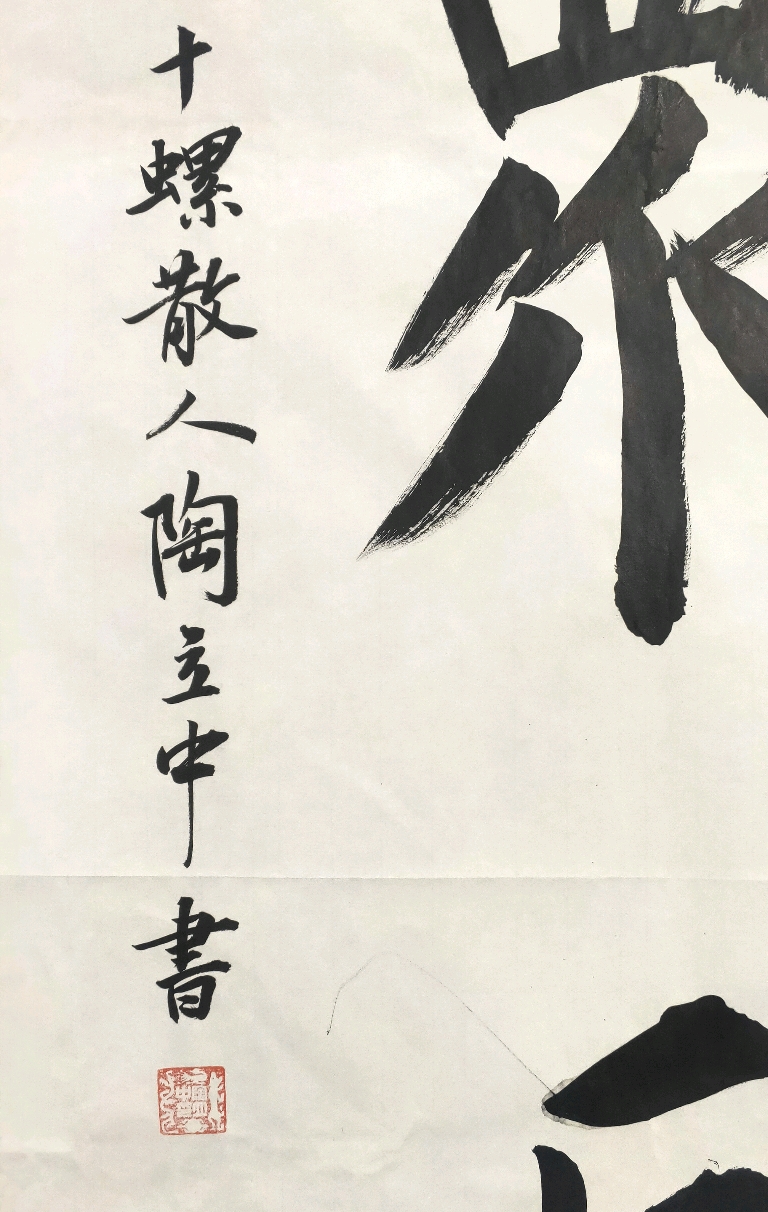 眾
十螺散人陶立中書